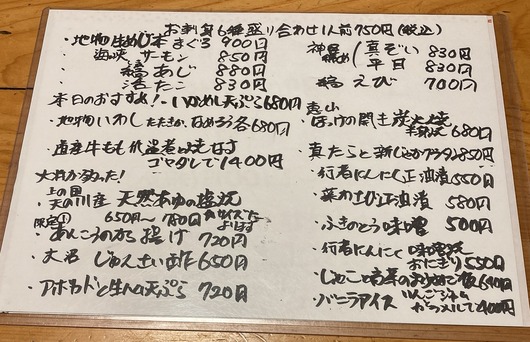 お刺身6種盛り合わせ1人前750円(税込)
・地物生めじ本まぐろ 900円
海峡サーモン 850円
活〆あじ 880円
活たこ 830円
神経〆 真ぞい 830円
平目 830円
えび 700円
本日のおすすめ!・いかめし天ぷら680円
・地物いわし たたきか、なめろう各680円
・道産牛もも低温煮
ゴマダレで1400円
大物が釣った!
上の国
天の川産 天然あゆの塩焼
限定 650円〜780円 サイズによります
・あんこうのから揚げ 720円
・大沼 じゅんさい酢 650円
・アボカドと生ハム天ぷら 720円
・恵山
ほっけの開き炭火焼
半身 680円
・真たらと新じゃがグラタン850円
・行者にんにく正油漬550円
・葉わさび正油漬 580円
・ふきのとう味噌 500円
・行者にんにく味噌焼
おにぎり550円
・じゃこと青草のまぜご飯640円
・バニラアイス りんごジャム
400円